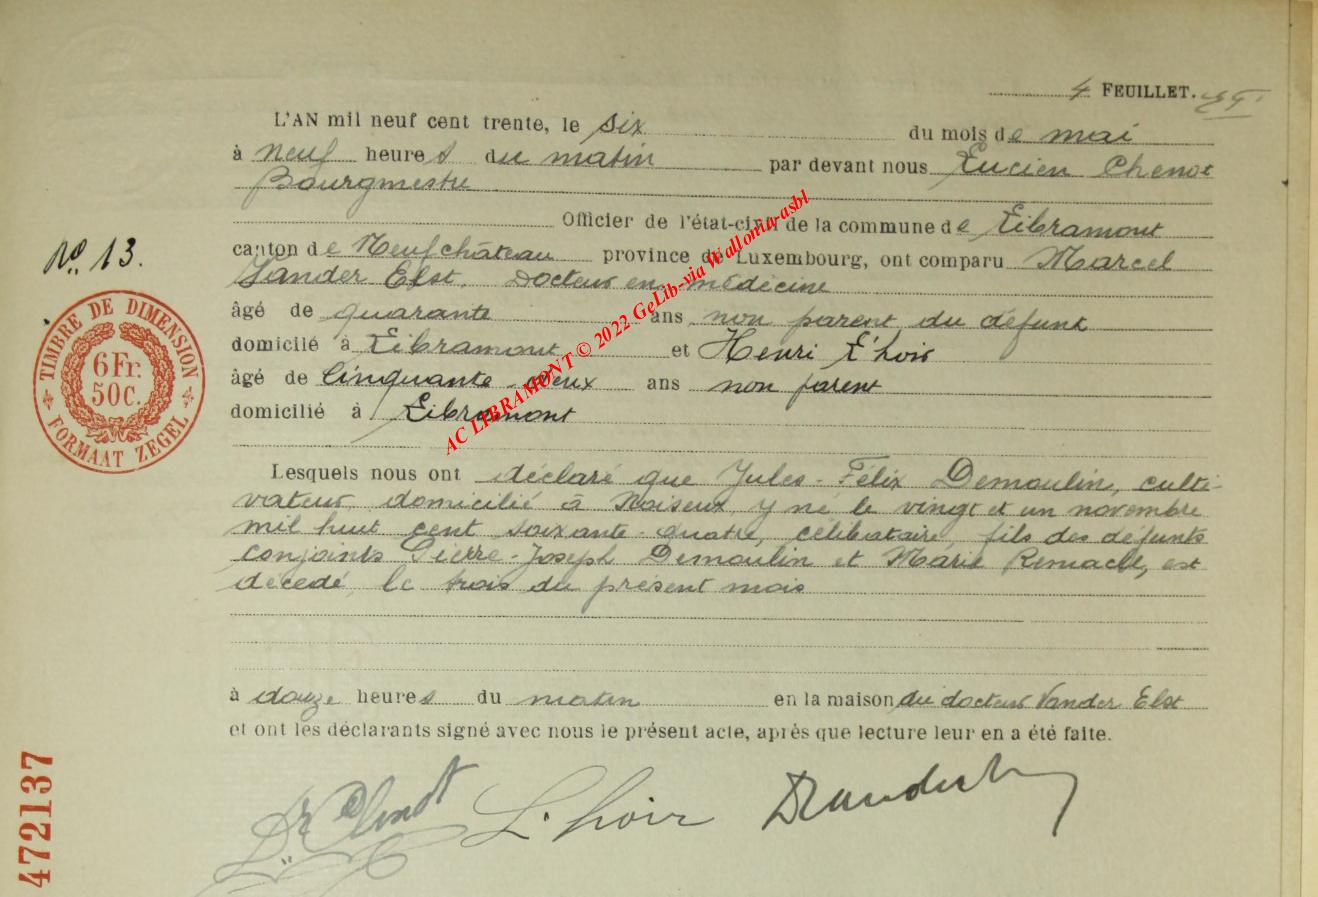 4 FEUILLET.
L'AN mil neuf cent trente, le six du mois de mai
à neuf heures du matin par devant nous Lucien Chenot
Bourgmestre
Officier de l'état-civil de la commune de Libramont
canton de Neufchâteau province de Luxembourg, ont comparu Marcel
Vander Elst, Docteur en médecine
âgé de quarante ans non parent du défunt
domicilié à Libramont et Henri L'hoir
âgé de cinquante-deux ans non parent
domicilié à Libramont
No 13.
TIMBRE DE DIMENSION
6 Fr.
50 C.
FORMAAT ZEGEL
Lesquels nous ont déclaré que Jules-Félix Demoulin, culti-
vateur, domicilié à Noiseux, y né le vingt et un novembre
mil huit cent soixante-quatre, célibataire, fils des défunts
conjoints Pierre-Joseph Demoulin et Marie Remacle, est
décédé, le trois du présent mois
à douze heures du matin en la maison du docteur Vander Elst
et ont les déclarants signé avec nous le présent acte, après que lecture leur en a été faite.
Dr Chenot L. hoir
472137
AC LIBRAMONT © 2022 GeLib-via Wallonia-asbl